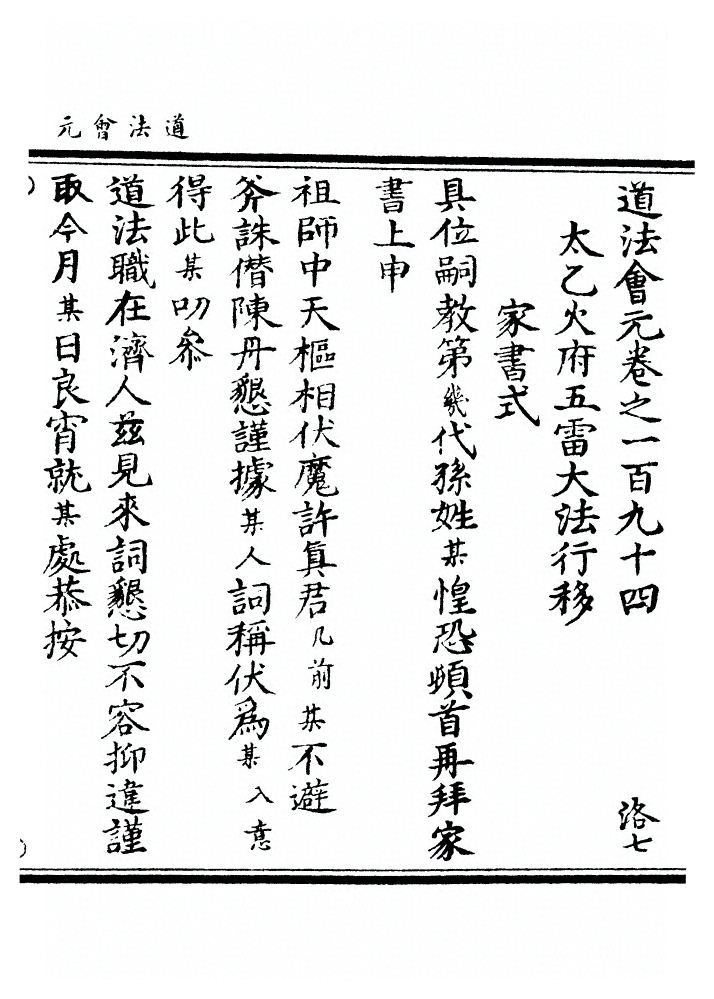 道法會元
道法會元卷之一百九十四　洛七
太乙火府五雷大法行移
家書式
具位嗣教第幾代孫姓某惶恐頓首再拜家
書上申
祖師中天樞相伏魔許眞君几前某不避
斧誅僭陳丹懇謹據某人詞稱伏爲某入意
得此某叨叅
道法職在濟人茲見來詞懇切不容抑違謹
取今月某日良宵就某處恭按